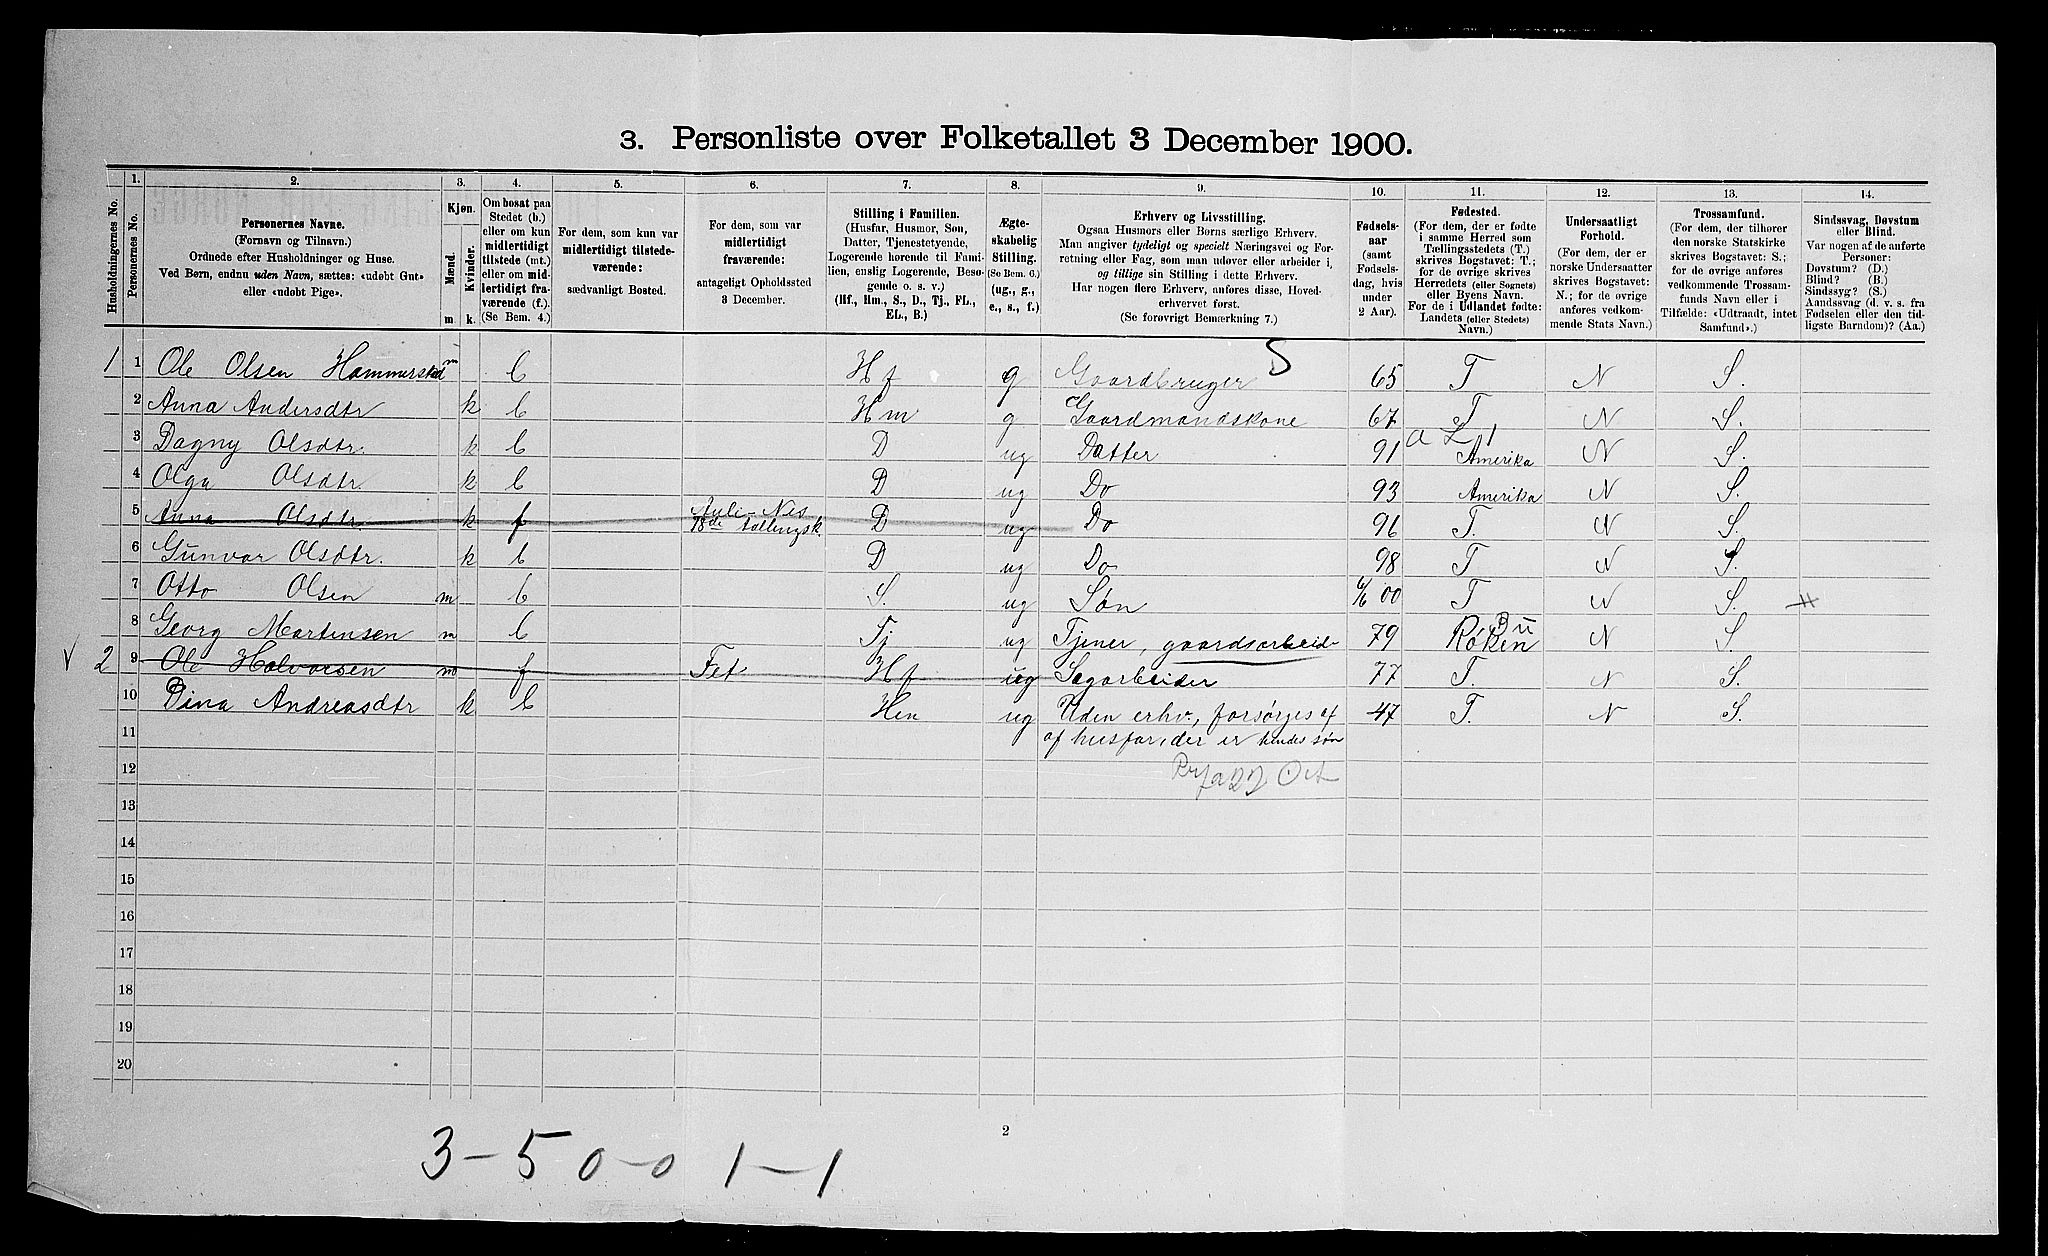 3. Personliste over Folketallet 3 December 1900.
Husholdningernes No.
1.
Personernes No.
2.
Personernes Navne.
(Fornavn og Tilnavn.)
Ordnede efter Husholdninger og Huse.
Ved Børn, endnu uden Navn, sættes: «udøbt Gut»
eller «udøbt Pige».
3.
Kjøn.
Mænd.
Kvinder.
m. k.
4.
Om bosat paa
Stedet (b.)
eller om kun
midlertidigt
tilstede (mt.)
eller om mid-
lertidigt fra-
værende (f.).
(Se Bem. 4.)
5.
For dem, som kun var
midlertidigt tilstede-
værende:
sædvanligt Bosted.
6.
For dem, som var
midlertidigt
fraværende:
antageligt Opholdssted
3 December.
7.
Stilling i Familien.
(Husfar, Husmor, Søn,
Datter, Tjenestetyende,
Logerende hørende til Fami-
lien, enslig Logerende, Besø-
gende o. s. v.)
(Hf., Hm., S., D., Tj., FL.,
EL., B.)
8.
Ægte-
skabelig
Stilling.
(Se Bem. 6.)
(ug., g.,
e., s., f.)
9.
Erhverv og Livsstilling.
Ogsaa Husmors eller Børns særlige Erhverv.
Man angiver tydeligt og specielt Næringsvei og For-
retning eller Fag, som man udøver eller arbeider i,
og tillige sin Stilling i dette Erhverv.
Har nogen flere Erhverv, anføres disse, Hoved-
erhvervet først.
(Se forøvrigt Bemærkning 7.)
10.
Fødsels-
aar
(samt
Fødsels-
dag, hvis
under
2 Aar).
11.
Fødested.
(For dem, der er fødte
i samme Herred som
Tællingsstedets (T.)
skrives Bogstavet: T.;
for de øvrige skrives
Herredets (eller Sognets)
eller Byens Navn.
For de i Udlandet fødte:
Landets (eller Stedets)
Navn.)
12.
Undersaatligt
Forhold.
(For dem, der er
norske Undersaatter
skrives Bogstavet:
N.; for de øvrige
anføres vedkom-
mende Stats Navn.)
13.
Trossamfund.
(For dem, der tilhører
den norske Statskirke
skrives Bogstavet: S.;
for de øvrige anføres
vedkommende Trossam-
funds Navn eller i
Tilfælde: «Udtraadt, intet
Samfund».)
14.
Sindssvag, Døvstum
eller Blind.
Var nogen af de anførte
Personer:
Døvstum? (D.)
Blind? (B.)
Sindssyg? (S.)
Aandssvag (d. v. s. fra
Fødselen eller den tid-
ligste Barndom)? (Aa.)
5
1 1 Ole Olsen Hammerstad m b Hf g Gaardbruger 65 T N S.
2 Anna Andersdtr k b Hm g Gaardmandskone 67 T N S.
3 Dagny Olsdtr. k b D ug Datter 91 Amerika N S.
4 Olga Olsdtr. k b D ug Do 93 Amerika N S.
5 Anna Olsdtr. k f Auli-Nes 18de tællingsk. D ug Do 96 T. N S.
6 Gunvor Olsdtr. k b D ug Do 98 T N S.
7 Otto Olsen m b S. ug Søn 6/6 00 T N S.
8 Georg Martinsen m b Tj ug Tjener, gaardsarbeid 79 Røken Bu N S.
2 9 Ole Halvorsen m f Fet Hf ug Sagarbeider 77 T. N S.
10 Dina Andreasdtr k b Hm ug Uden erhv., forsørges af 47 T. N S.
11 af husfar, der er hendes søn
12
13
14
15
16
17
18
19
20
2
3-5 0-0 1-1